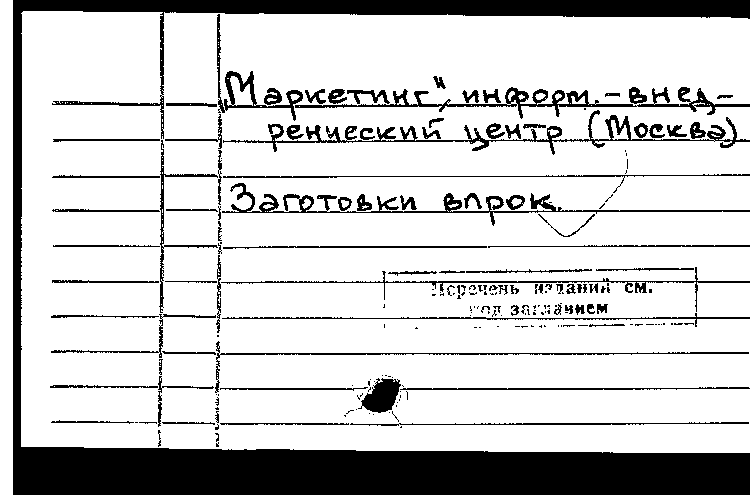 „Маркетинг", информ.-внед-
ренческий центр (Москва)
Заготовки впрок.
Перечень изданий см.
под заглавием